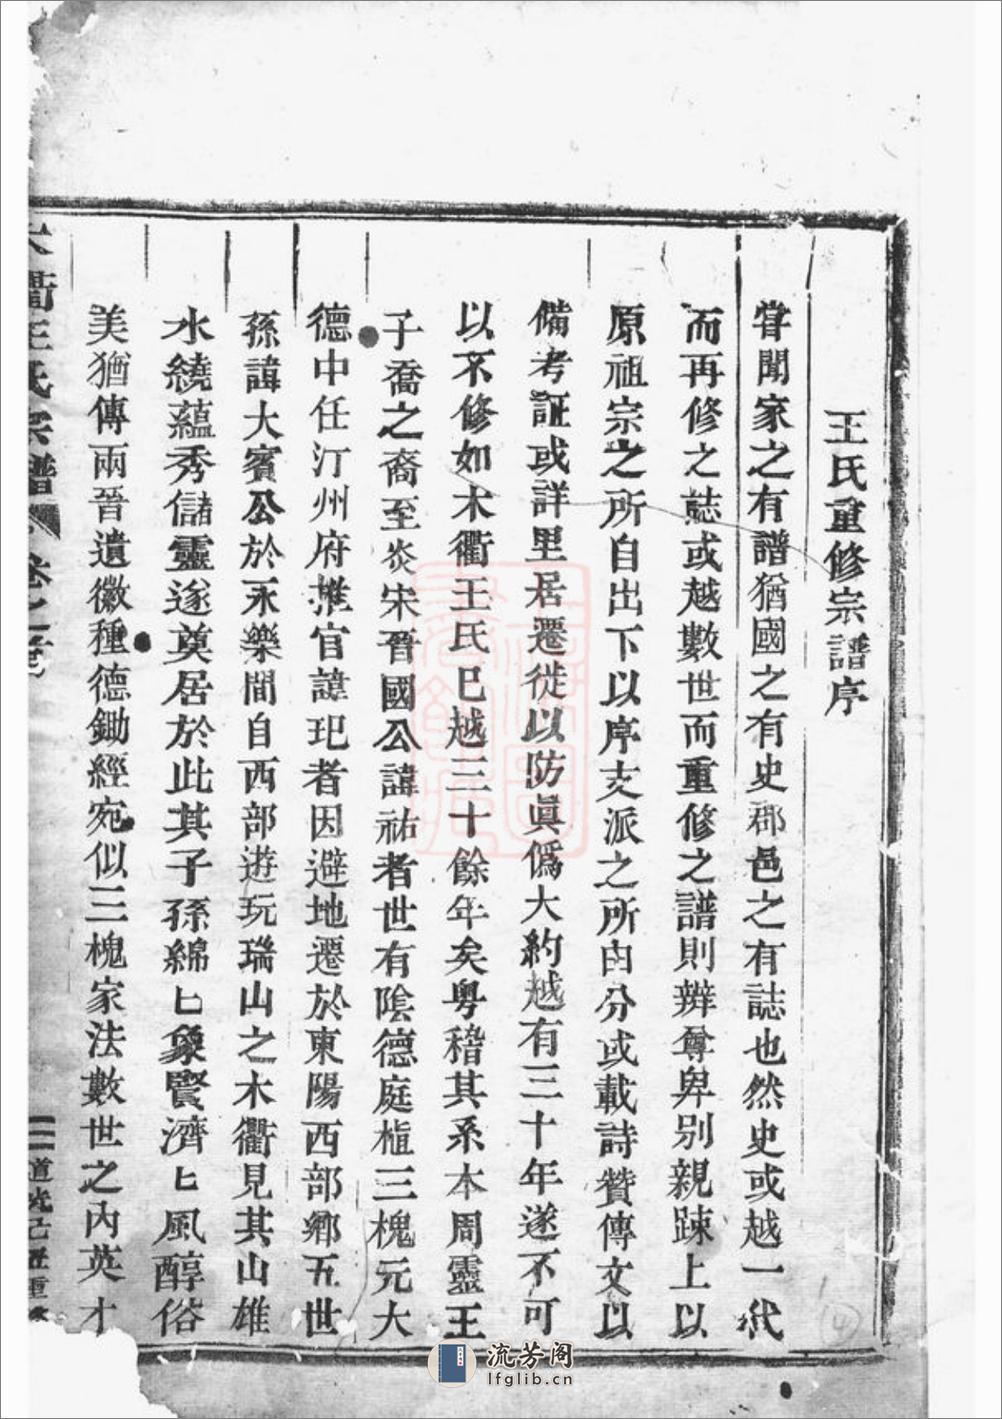 王氏重修宗譜序
嘗聞家之有譜猶國之有史郡邑之有誌也然史或越一代
而再修之誌或越數世而重修之譜則辨尊卑别親踈上以
原祖宗之所自出下以序支派之所由分或載詩贊傳文以
備考証或詳里居遷徙以防眞僞大約越有三十年遂不可
以不修如木衢王氏已越三十餘年矣粤稽其系本周靈王
子喬之裔至炎宋晉國公諱祐者世有陰德庭植三槐元大
德中任汀州府推官諱玘者因避地遷於東陽西部鄉五世
孫諱大賓公於永樂間自西部遊玩瑞山之木衢見其山雄
水繞蘊秀儲靈遂奠居於此其子孫綿匕象賢濟匕風醇俗
美猶傳兩晉遺徽種德鋤經宛似三槐家法數世之內英才
木衢王氏宗譜 卷之
道光己丑重修
流芳阁
lfglib.cn